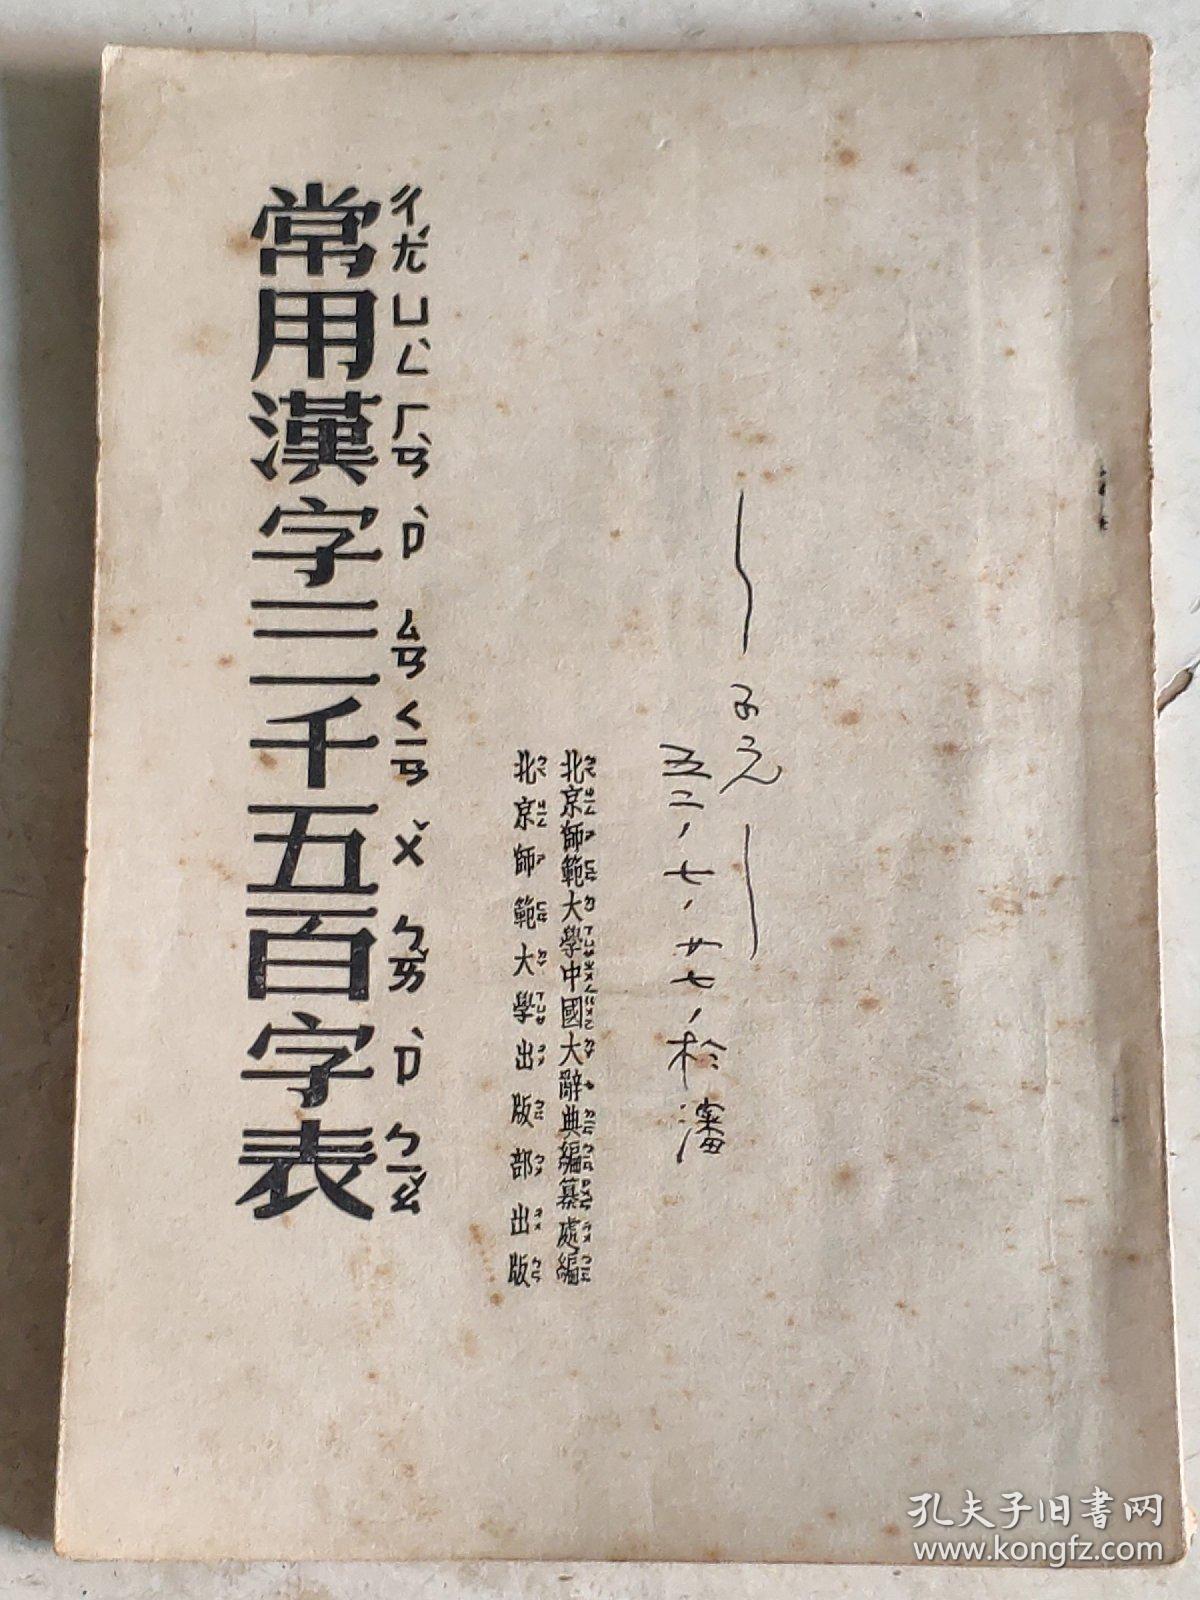 五二、七、廿七、於瀋
北京師範大學中國大辭典編纂處編
北京師範大學出版部出版
ㄔㄤˊ ㄩㄥˋ ㄏㄢˋ ㄗˋ ㄙㄢ ㄑㄧㄢ ㄨˇ ㄅㄞˇ ㄗˋ ㄅㄧㄠˇ
常用漢字三千五百字表
孔夫子旧书网
www.kongfz.com